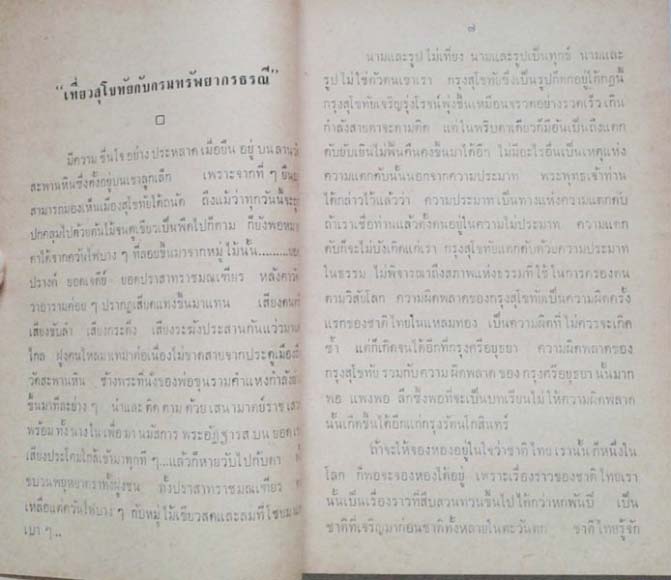 "เที่ยวสุโขทัยกับกรมทรัพยากรธรณี"
มีความชื่นใจอย่างประหลาด เมื่อยืนอยู่บนลาน
สะพานหินซึ่งตั้งอยู่บนเขาลูกเล็ก เพราะจากที่ๆยืน
สามารถมองเห็นเมืองสุโขทัยได้ถนัด ถึงแม้ว่าทุกวันนี้จะ
ปกคลุมไปด้วยต้นไม้จนดูเขียวเป็นพืดไปก็ตาม ก็ยังพอ
คาได้จากควันไฟบางๆ ที่ลอยขึ้นมาจากหมู่ไม้นั้น........
ปรางค์ ยอดเจดีย์ ยอดปราสาทราชมณเฑียร หลังคา
วาอารามค่อยๆ ปรากฏเสียดแทงขึ้นมาแทน เสียงคน
เสียงขับลำ เสียงกระดิ่ง เสียงระฆังประสานกันแว่วมา
ไกล ฝูงคนไหลมาเทมาต่อเนื่องไม่ขาดสายจากประตูเมือง
วัดสะพานหิน ช้างพระที่นั่งของพ่อขุนรามคำแหงกำลัง
ขึ้นมาทีละย่างๆ นำและติดตามด้วยเสนามาตย์ราช
พร้อมทั้งนางในเพื่อมานมัสการ พระอัฏฐารสบนยอด
เสียงประโคมใกล้เข้ามาทุกทีๆ...แล้วก็หายวับไปกับตา
ขบวนพยุหยาตราทั้งฝูงชน ทั้งปราสาทราชมณเฑียร
เหลือแต่ควันไฟบางๆ กับหมู่ไม้เขียวสดและลมที่โชย
เบาๆ...
๗
นามและรูปไม่เที่ยง นามและรูปเป็นทุกข์ นามและ
รูปไม่ใช่ตัวตนเราเรา กรุงสุโขทัยซึ่งเป็นรูปก็ตกอยู่ใต้กฎนี้
กรุงสุโขทัยเจริญรุ่งโรจน์พุ่งขึ้นเหมือนจรวดอย่างรวดเร็ว เกิน
กำลังสายตาจะตามติด แต่ในพริบตาเดียวก็มีอันเป็นถึงแตก
ดับยับเยินไม่ฟื้นคืนคงขึ้นมาได้อีก ไม่มีอะไรอื่นเป็นเหตุแห่ง
ความแตกดับนั้นนอกจากความประมาท พระพุทธเจ้าท่าน
ได้กล่าวไว้แล้วว่า ความประมาท เป็นทางแห่งความแตกดับ
ถ้าเราเชื่อท่านแล้วตั้งตนอยู่ในความไม่ประมาท ความแตก
ดับก็จะไม่บังเกิดแก่เรา กรุงสุโขทัยแตกดับด้วยความประมาท
ในธรรม ไม่พิจารณาถึงสภาพแห่งธรรมที่ใช้ในการครองตน
ตามวิสัยโลก ความผิดพลาดของกรุงสุโขทัยเป็นความผิดครั้ง
แรกของชาติไทยในแหลมทอง เป็นความผิดที่ไม่ควรจะเกิด
ซ้ำ แต่ก็เกิดจนได้อีกที่กรุงศรีอยุธยา ความผิดพลาดของ
กรุงสุโขทัย รวมกับความผิดพลาดของกรุงศรีอยุธยานั้นมาก
พอ แพงพอ ลึกซึ้งพอที่จะเป็นบทเรียนไม่ให้ความผิดพลาด
นั้นเกิดขึ้นได้อีกแก่กรุงรัตนโกสินทร์
ถ้าจะให้จองหองอยู่ในใจว่าชาติไทยเรานั้นก็หนึ่งใน
โลก ก็พอจะจองหองได้อยู่ เพราะเรื่องราวของชาติไทยเรา
นั้นเป็นเรื่องราวที่สืบสวนทวนขึ้นไปได้กว่าหกพันปี เป็น
ชาติที่เจริญมาก่อนชาติทั้งหลายในตะวันตก ชาติไทยรู้จัก